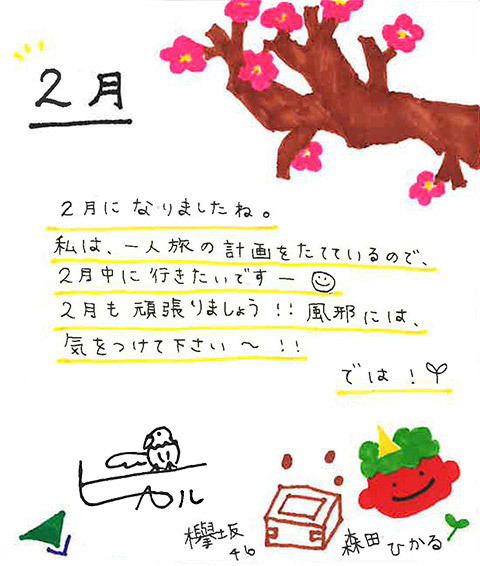 2月
2月になりましたね。
私は、一人旅の計画をたてているので、
2月中に行きたいですー
2月も頑張りましょう!! 風邪には、
気をつけて下さい〜 !!
では!
ヒカル
欅坂
46
森田
ひかる